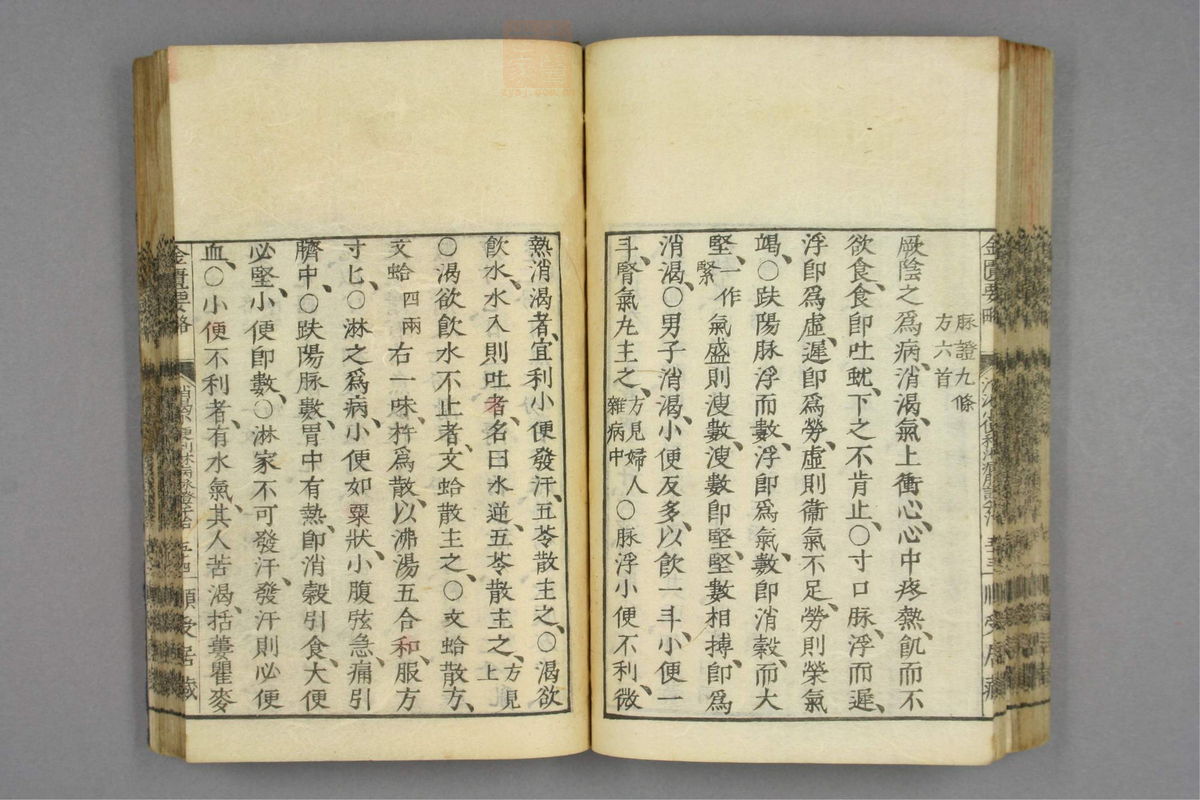 脉證九條
方六首
厥陰之爲病、消渴、氣上衝心、心中疼熱、飢而不
欲食、食即吐蚘、下之不肯止、○寸口脉、浮而遲、
浮即爲虛、遲即爲勞、虛則衞氣不足、勞則榮氣
竭、○趺陽脉浮而數、浮即爲氣、數即消穀、而大
堅、一作緊氣盛則溲數、溲數即堅、堅數相搏、即爲
消渴、○男子消渴、小便反多、以飲一斗、小便一
斗、腎氣丸主之、方見婦人雜病中○脉浮小便不利、微
熱消渴者、宜利小便發汗、五苓散主之、○渴欲
飲水、水入則吐者、名曰水逆、五苓散主之、方見上
○渴欲飲水不止者、文蛤散主之、○文蛤散方、
文蛤四兩右一味、杵爲散、以沸湯五合和、服方
寸匕、○淋之爲病、小便如粟狀、小腹弦急、痛引
臍中、○趺陽脉數、胃中有熱、即消穀引食、大便
必堅、小便即數、○淋家不可發汗、發汗則必便
血、○小便不利者、有水氣、其人苦渴、括蔞瞿麥
金匱要略
五十四
順受居藏